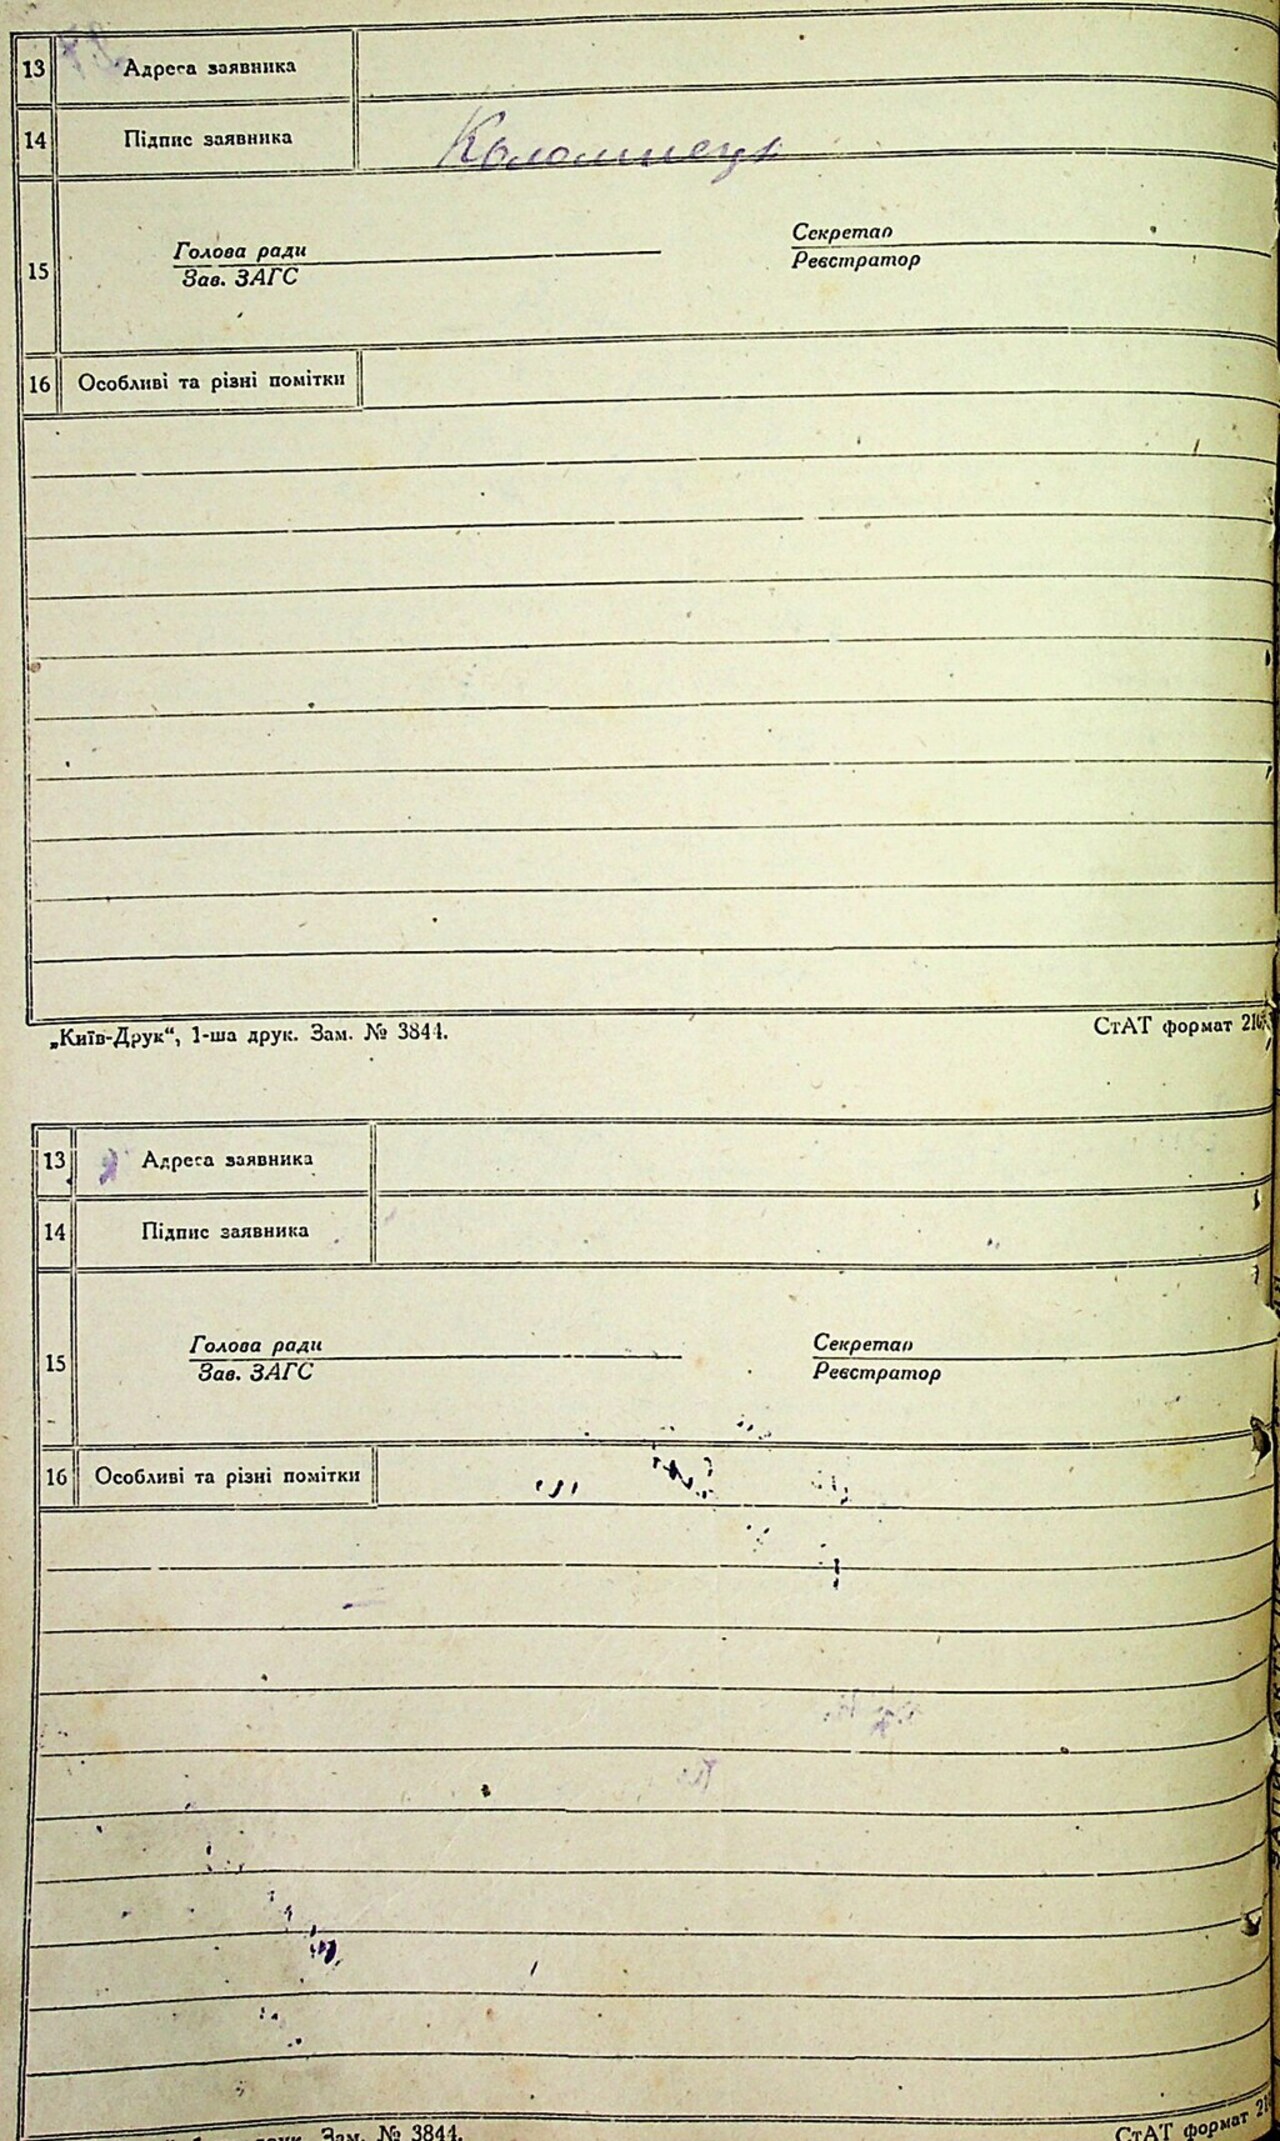 13 Адреса заявника
14 Підпис заявника Коломиець
Голова ради Секретар
15
Зав. ЗАГС Реєстратор
16 Особливі та різні помітки
„Київ-Друк“, 1-ша друк. Зам. № 3844. СтАТ формат
13 Адреса заявника
14 Підпис заявника
Голова ради Секретар
15
Зав. ЗАГС Реєстратор
16 Особливі та різні помітки
Зам. № 3844. СтАТ формат